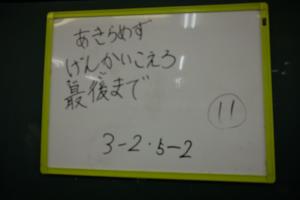 あきらめず
げんかいこえろ
最後まで
11
3-2・5-2